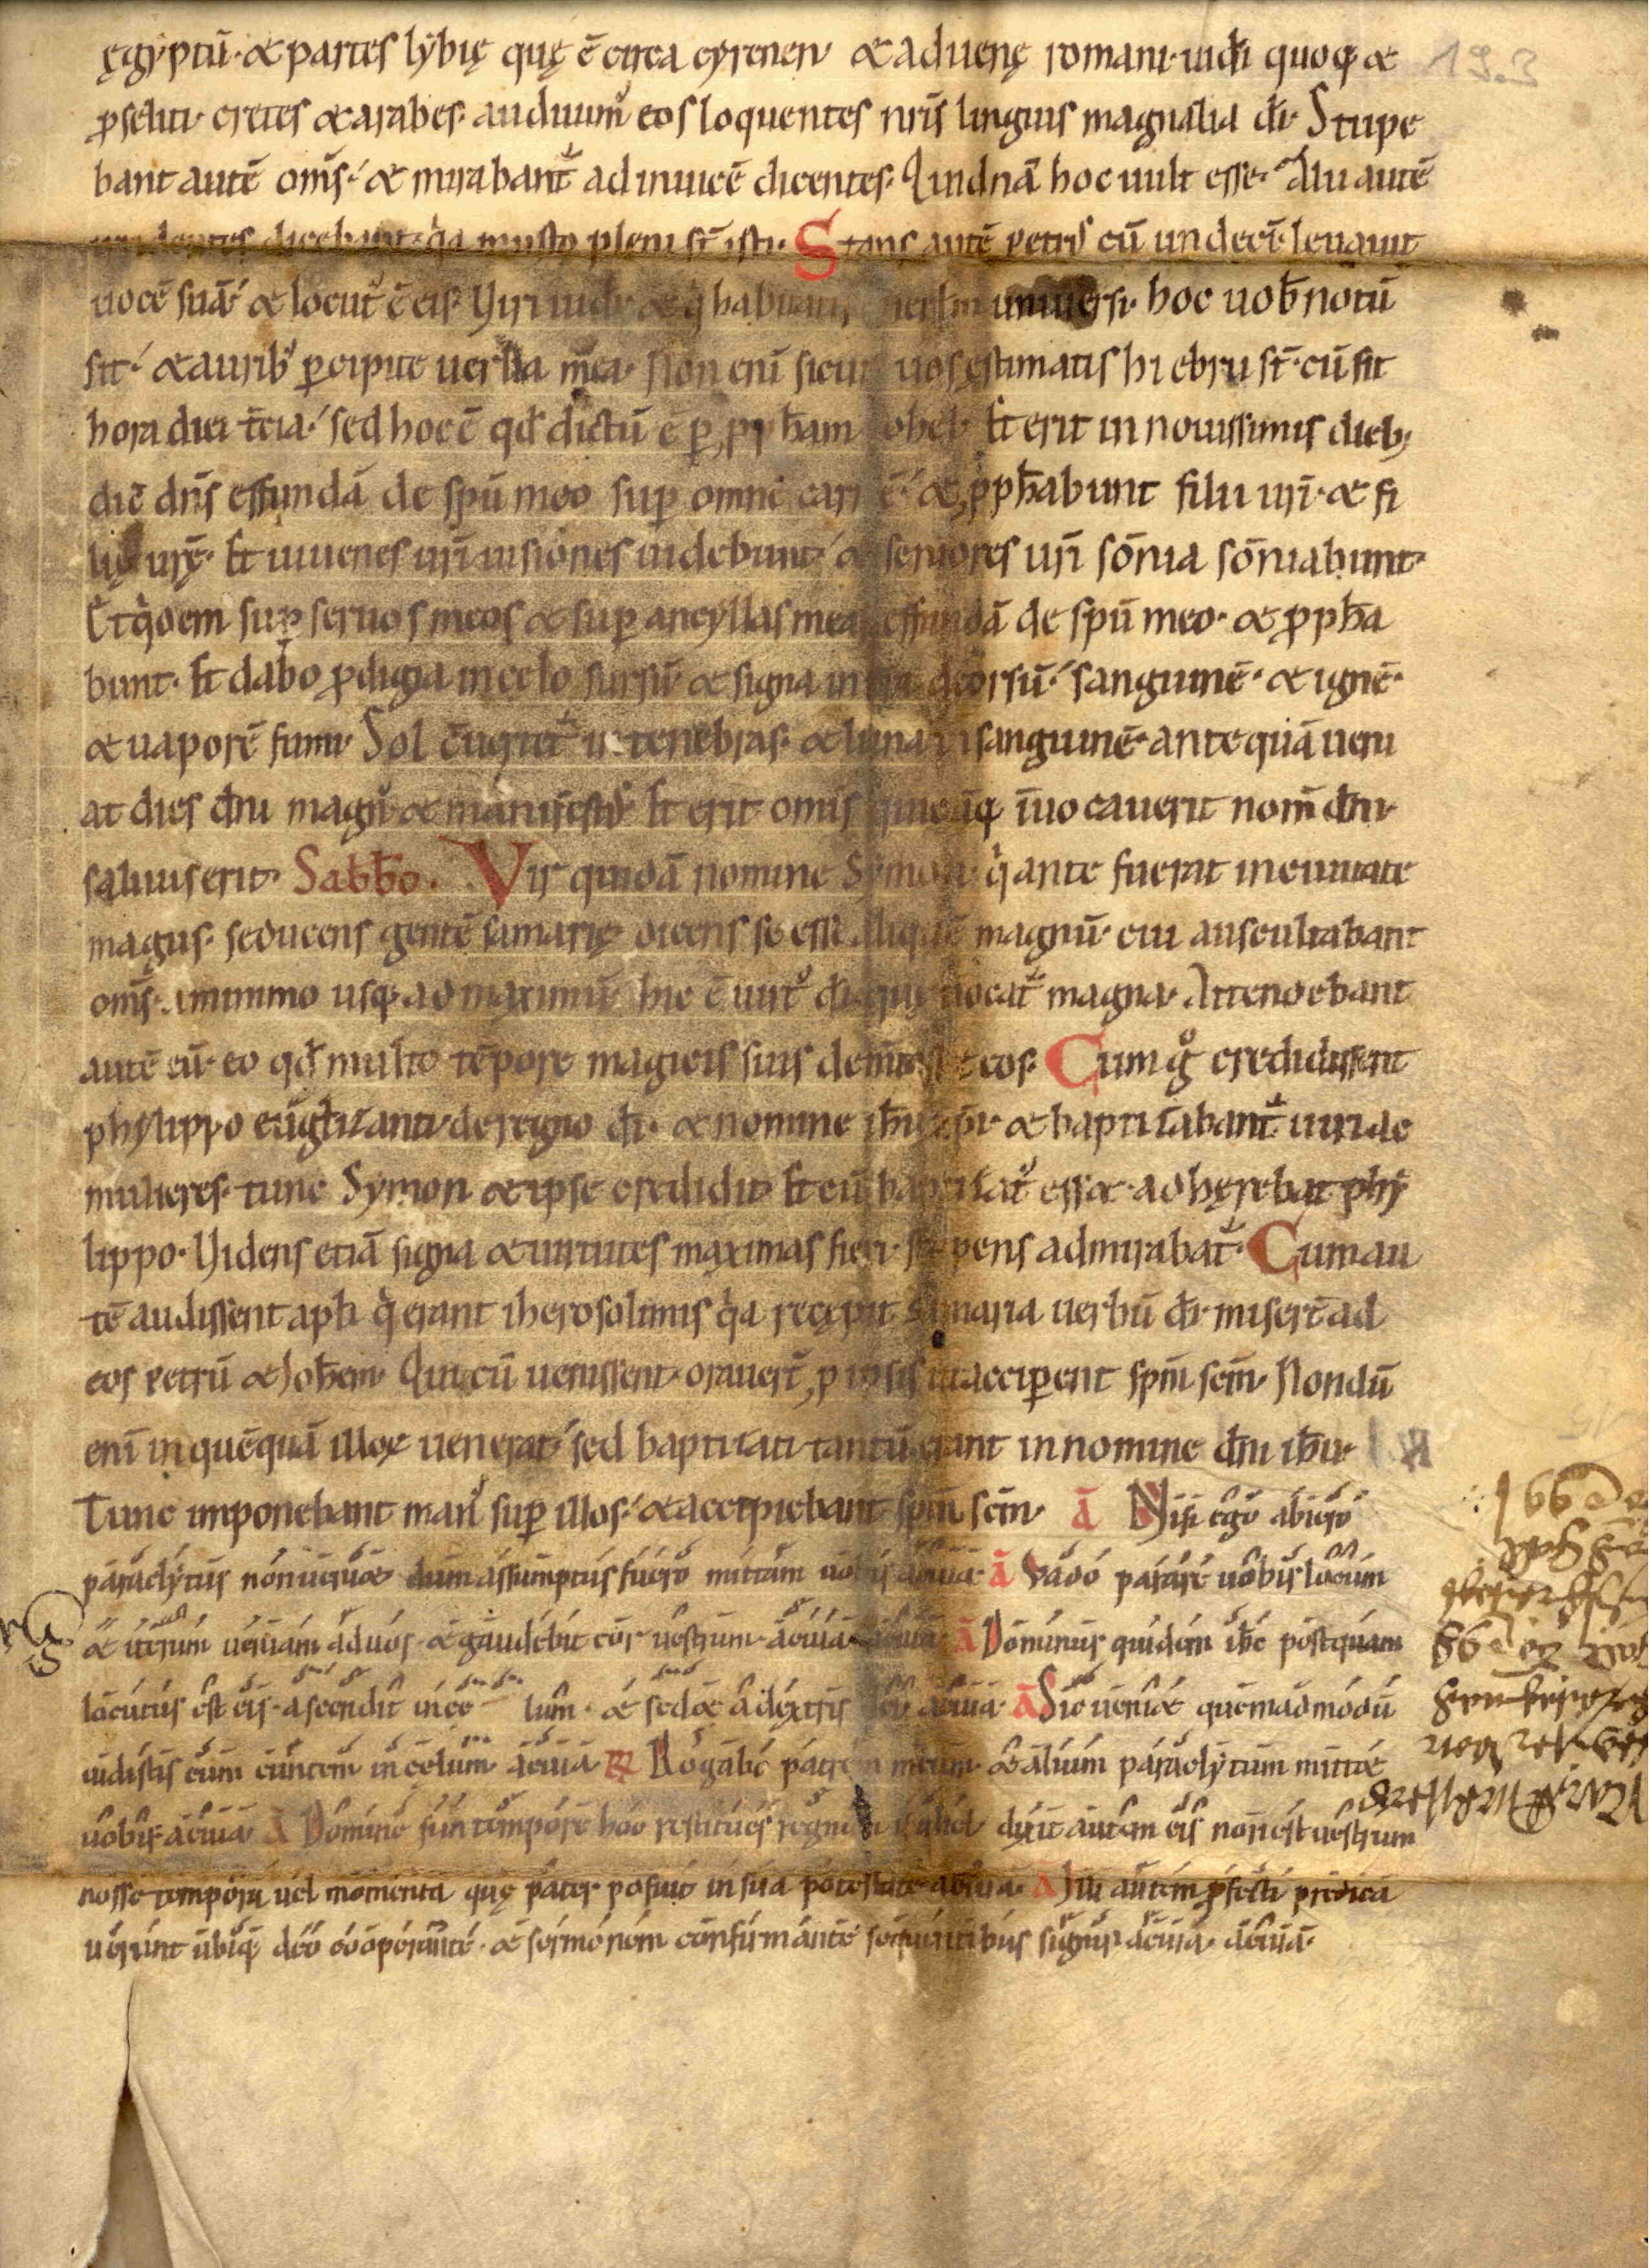 ęgyptū· & partes lybię quę ē circa cyrenen· & aduenę romani· iudi quoq; &
pseliti· cretes & arabes· audiuim᷒ eos loquentes nr̄is linguis magnalia dī· Stupe
bant autē om̄s· & mirabant᷒ adinuicē dicentes· Quidnā hoc uult esse· Alii autē
irridentes dicebant· q̇a musto pleni st̄ isti· Stans autē petr᷒ cū undecī· leuauit
uocē suā· & locut᷒ ē eis· Viri iudi & q̇ habitatis ierlm̄ uniuersi· hoc uob̄ notū
sit· & aurib᷒ pcipite uerba mea· Non enī sicut uos ęstimatis hi ebrii st̄· cū sit
hora diei t̄cia· sed hoc ē qd̄ dictū ē p pph̄am iohel· Et erit in nouissimis dieb;
dic̄ dn̄s effundā de spū meo sup omnē carnē· & pph̄abunt filii ur̄i· & fi
lię ur̄ę· Et iuuenes ur̄i uisiones uidebunt· & seniores ur̄i sōnia sōniabunt·
Et q̇dem sup seruos meos & sup ancyllas meas effundā de spū meo· & pph̄a
bunt· Et dabo pdigia in celo sursū· & signa in t̄ra deorsū· sanguinē· & ignē·
& uaporē fumi· Sol c̄uertet᷒ in tenebras· & luna in sanguinē· antequā ueni
at dies dn̄i magn᷒ & manifest᷒· Et erit· omīs quicūq; īuocauerit nom̄ dn̄i·
saluus erit· Sabb̄o. Vir quidā nomine Symon· q̇ ante fuerat in ciuitate
magus· seducens gentē samarię· dicens se esse aliquē magnū· cui auscultabant
om̄s· a minimo usq; ad maximū· hic ē uirt᷒ dī· quę uocat᷒ magna· Attendebant
autē eū· eo qd̄ multo tēpore magicis suis dem̄tasset eos· Cum g᷒ credidissent
phylippo euāglizanti de regno dī· & nomine ih̄u xp̄i· & baptizabant᷒ uiri ac
mulieres· tunc Symon & ipse credidit· Et cū baptizat᷒ ess& · adhęrebat phy
lippo· Videns etiā signa & uirtutes maximas fieri· stupens admirabat᷒· Cum au
tē audissent apl̄i q̇ erant iherosolimis q̇a recępit samaria uerbū dī· miser̄t ad
eos petrū & Ioh̄em· Qui cū uenissent· orauer̄t p ipsis ut accip̄ent spm̄ scm̄· Nondū
enī in quēquā illoꝝ uenerat· sed baptizati tantū erant in nomine dn̄i ih̄u·
Tunc imponebant man᷒ sup illos· & accipiebant spm̄ scm̄· ā Nisi ego abiero
paraclytus non ueni& · dum assumptus fuero mittam uobis aeuia ā Vado parare uobis locum
& iterum ueniam ad uos· & gaudebit cor uestrum· aeuia aeuia ā Dominus quidem ih̄c postquam
locutus est eis· ascendit in ce lum· & sed& a dextris dei aeuia ā Sic ueni& quemadmodū
uidistis eum euntem in celum aeuia ℟ Rogabo patrem meum· & alium paraclytum mitt&
uobis· aeuia ā Domine si in tempore hoc restitues regnum israhel dixit autem eis non est uestrum
nosse tempora uel momenta quę pater posuit in sua potestate aeuia· ā Illi autem pfecti predica
uerunt ubiq; deo cooperante· & sermonem confirmante sequentibus signis aeuia· aeuia·